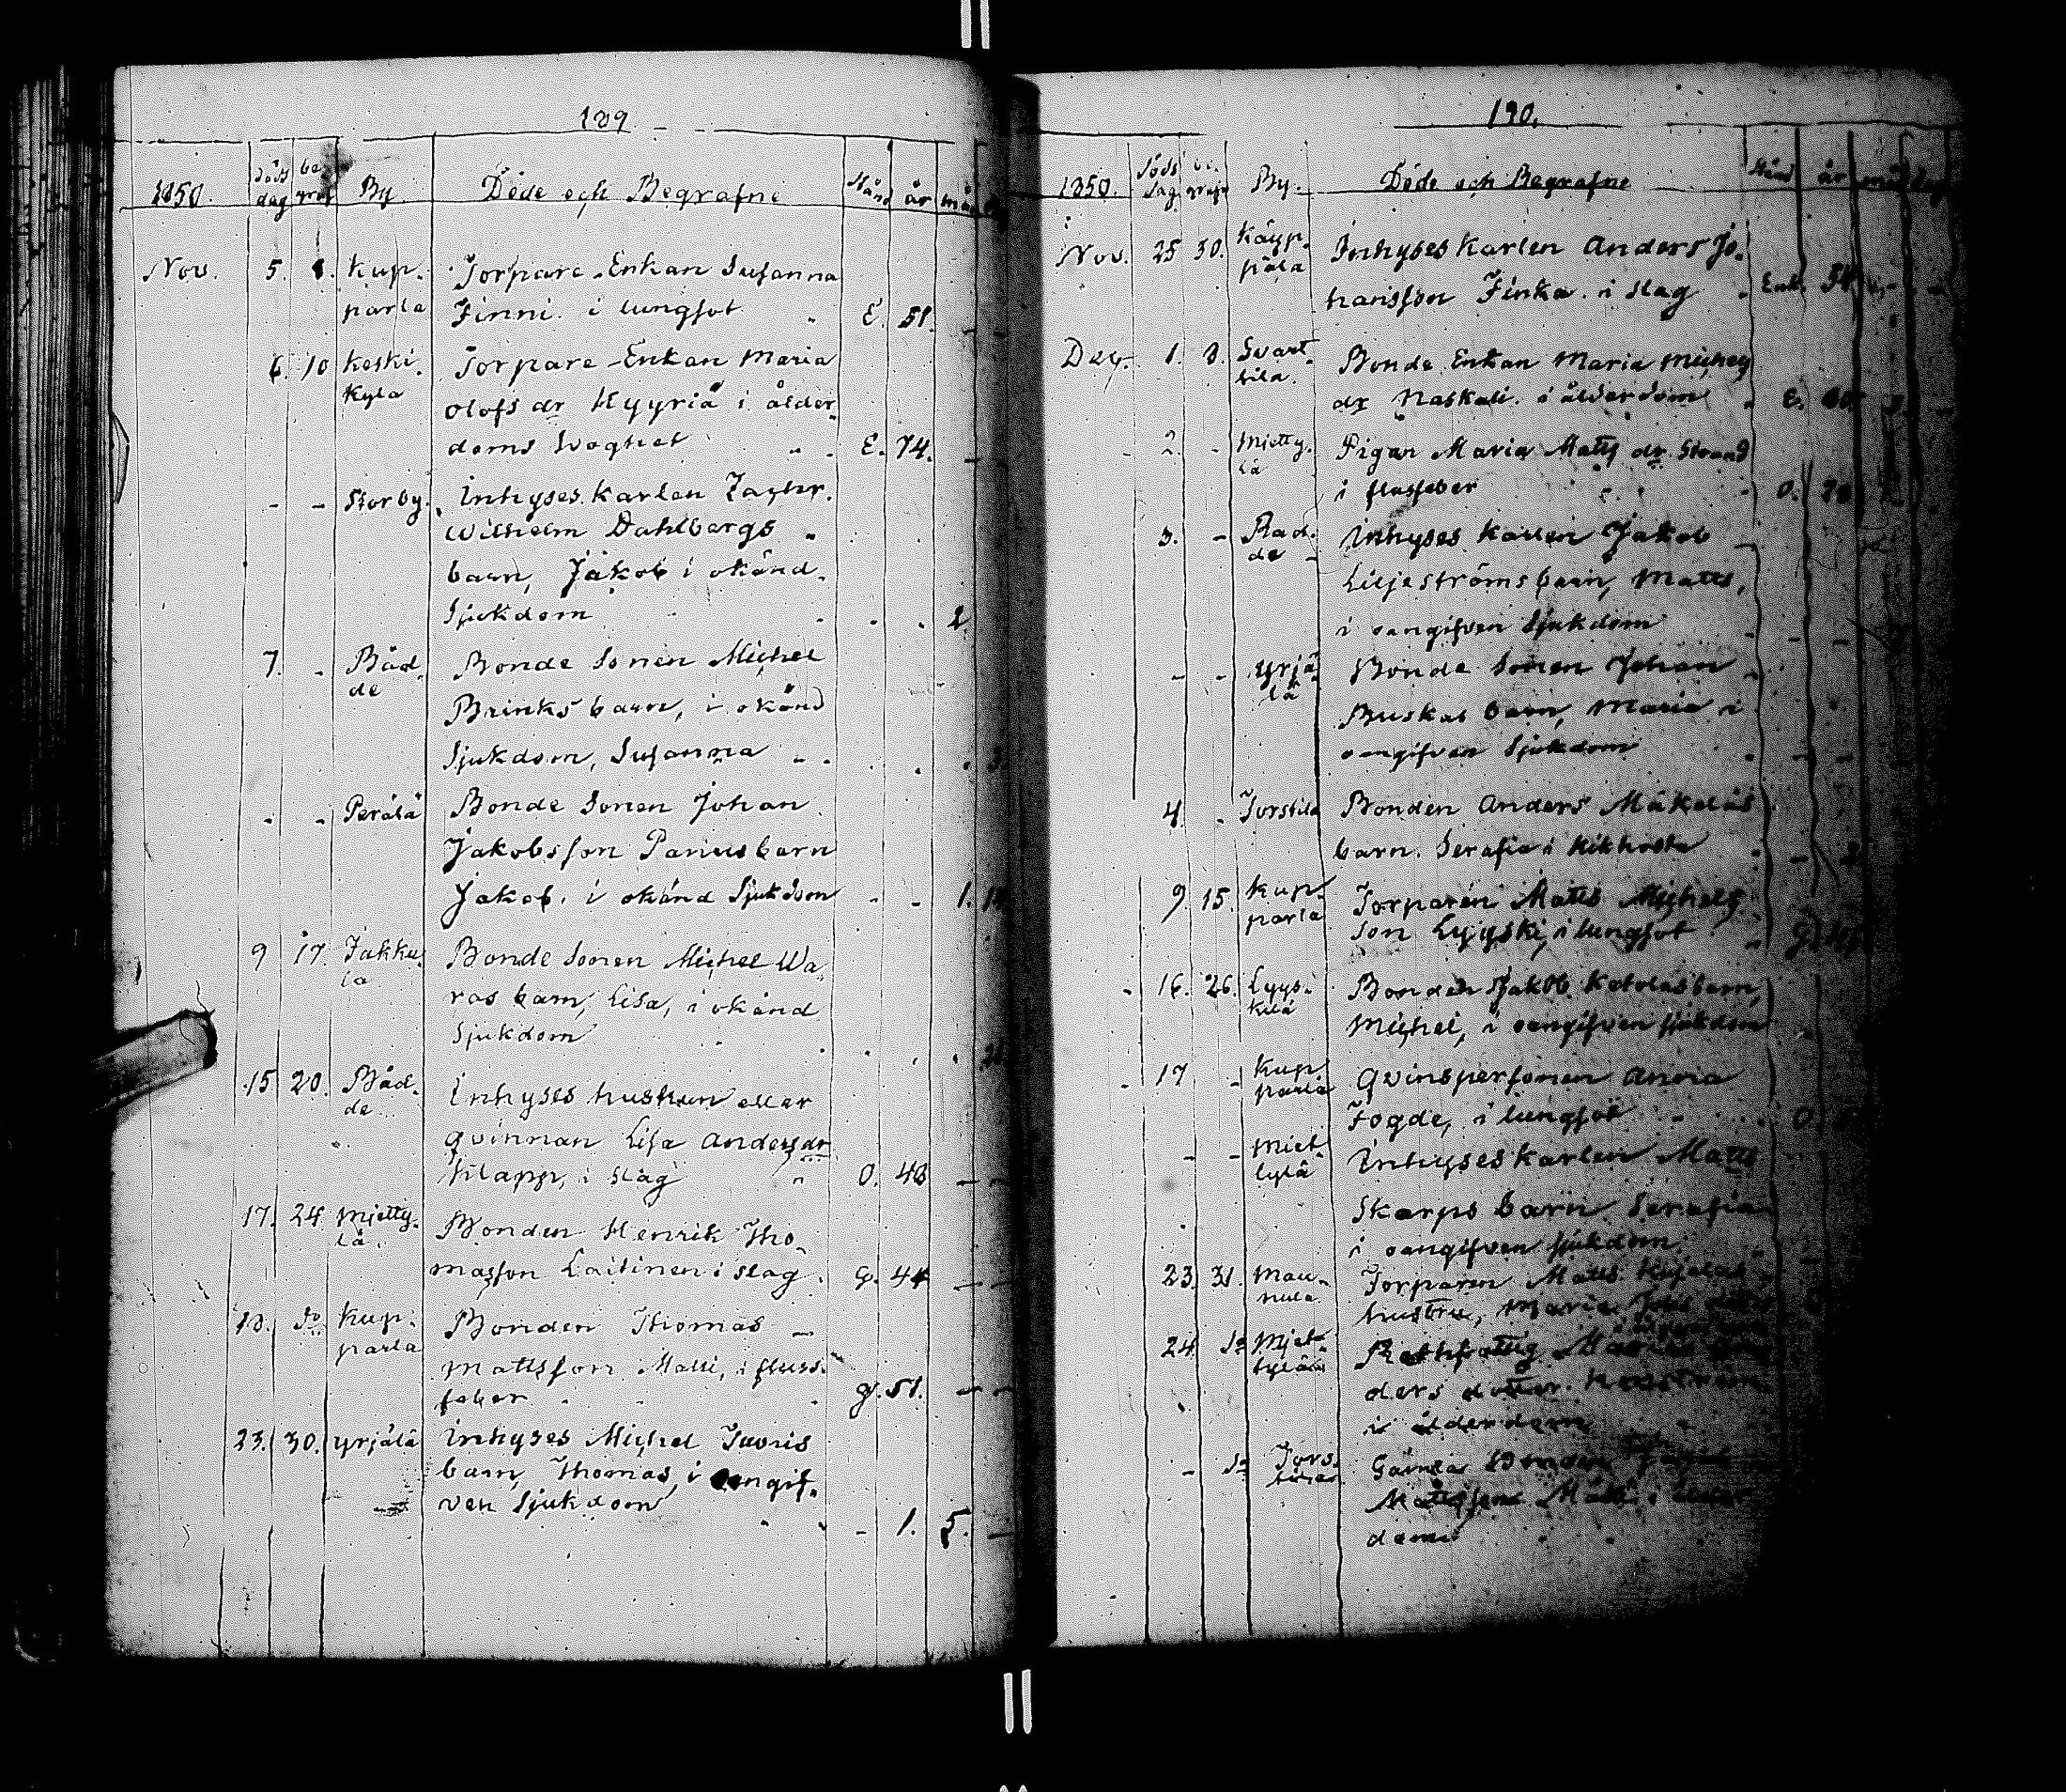 189
1850. döds dag be graf By Döde och Begrafne Stånd år mån
Nov. 5. 8. Kup- Torpare-Enkan Susanna
parla Finni. i lungsot E. 51.
6. 10 Keski- Torpare-Enkan Maria
Kylä Olofs dr Kyyriä i ålder
doms svaghet E. 74.
- - Storby. Inhyses karlen Zachr.
Wilhelm Dahlbergs
barn, Jakob i okänd
Sjukdom 2.
7. - Båd- Bonde Sonen Michel
de Brinks barn, i okänd
Sjukdom, Susanna 3.
- - Perälä Bonde Sonen Johan
Jakobsson Panius barn
Jakob. i okänd Sjukdom 1.
9 17. Jakku- Bonde Sonen Michel Wa
la ras barn, Lisa, i okänd
Sjukdom
15 20. Båd- Inhyses huskun eller
de qvinnan Lisa Anders dr
Klapp, i slag O. 48
17. 24 Mietty- Bonden Henrik Tho
lä. masson Laitinen i slag. G. 44
18. do Kup- Bonden Thomas
parla Mattsson Malli, i fluss-
feber G. 51.
23. 30. Yrjälä Inhyses Michel Juonis
barn, Thomas, i oangif-
ven Sjukdom 1. 5.
190.
1850. Döds dag be grafn By. Döde och Begrafne Stånd år mån dag
Nov. 25 30. Käyp- Inhyses karlen Anders Jo-
pälä hansson Finka. i slag Enk. 54
Dec. 1. 8. Svart- Bonde Enkan Maria Michels
bila. dr Naskali. i ålderdom E.
2. - Mietty- Pigan Maria Matts dr Strand
lä i flussfeber O.
3. - Båd- Inhyses karlen Jakob
de Liljeströms barn, Matts,
i oangifven Sjukdom
- - Yrjä- Bonde Sonen Johan
lä Buskas barn, Maria i
oangifven Sjukdom
4. - Torstila Bonden Anders Mäkeläs
barn. Serafia i Kikhosta
9. 15. Kup- Torparen Matts Michels
parla son Lyyski, i lungsot G.
16. 26. Lyys- Bonden Jakob Kotolas barn,
kilä Michel, i oangifven sjukdom
17 - Kup- Qvinspersonen Anna
parla Fogde, i lungsot O.
- - Miet- Inhyses karlen Matts
tylä Skarps barn Serafia
i oangifven sjukdom
23. 31. Mau- Torparen Matts
nula hustru, Maria
24. do Miet- Maria
tylä ders dotter
i ålderdom
- do Tors- Gamla Bonden
Mattsson
dom